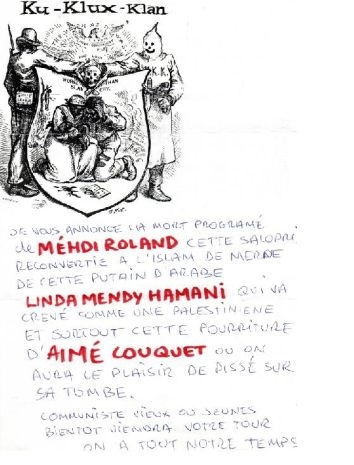 Ku-Klux-Klan
JE VOUS ANNONCE LA MORT PROGRAMÉ
de MÉHDI ROLAND CETTE SALOPRI
RECONVERTIE A L'ISLAM DE MERDE
DE CETTE PUTAIN D'ARABE
LINDA MENDY HAMANI QUI VA
CREVÉ COMME UNE PALESTINIENE
ET SURTOUT CETTE POURRITURE
D'AIMÉ COUQUET OU ON
AURA LE PLAISIR DE PISSÉ SUR
SA TOMBE.
COMMUNISTE VIEUX OU JEUNES
BIENTOT VIENDRA VOTRE TOUR
ON A TOUT NOTRE TEMPS